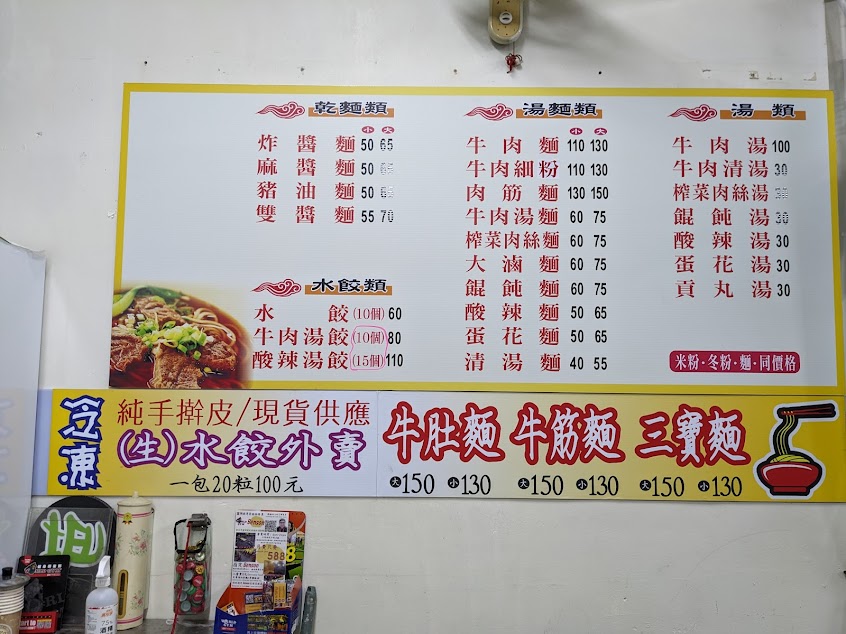 乾麵類
小 大
炸醬麵 50 65
麻醬麵 50
豬油麵 50
雙醬麵 55 70
水餃類
水餃(10個) 60
牛肉湯餃(10個) 80
酸辣湯餃(15個) 110
湯麵類
小 大
牛肉麵 110 130
牛肉細粉 110 130
肉筋麵 130 150
牛肉湯麵 60 75
榨菜肉絲麵 60 75
大滷麵 60 75
餛飩麵 60 75
酸辣麵 50 65
蛋花麵 50 65
清湯麵 40 55
湯類
牛肉湯 100
牛肉清湯 30
榨菜肉絲湯
餛飩湯 30
酸辣湯 30
蛋花湯 30
貢丸湯 30
米粉·冬粉·麵·同價格
冷凍
純手擀皮/現貨供應
(生)水餃外賣
一包20粒100元
牛肚麵 牛筋麵 三寶麵
大150 小130 大150 小130 大150 小130
588